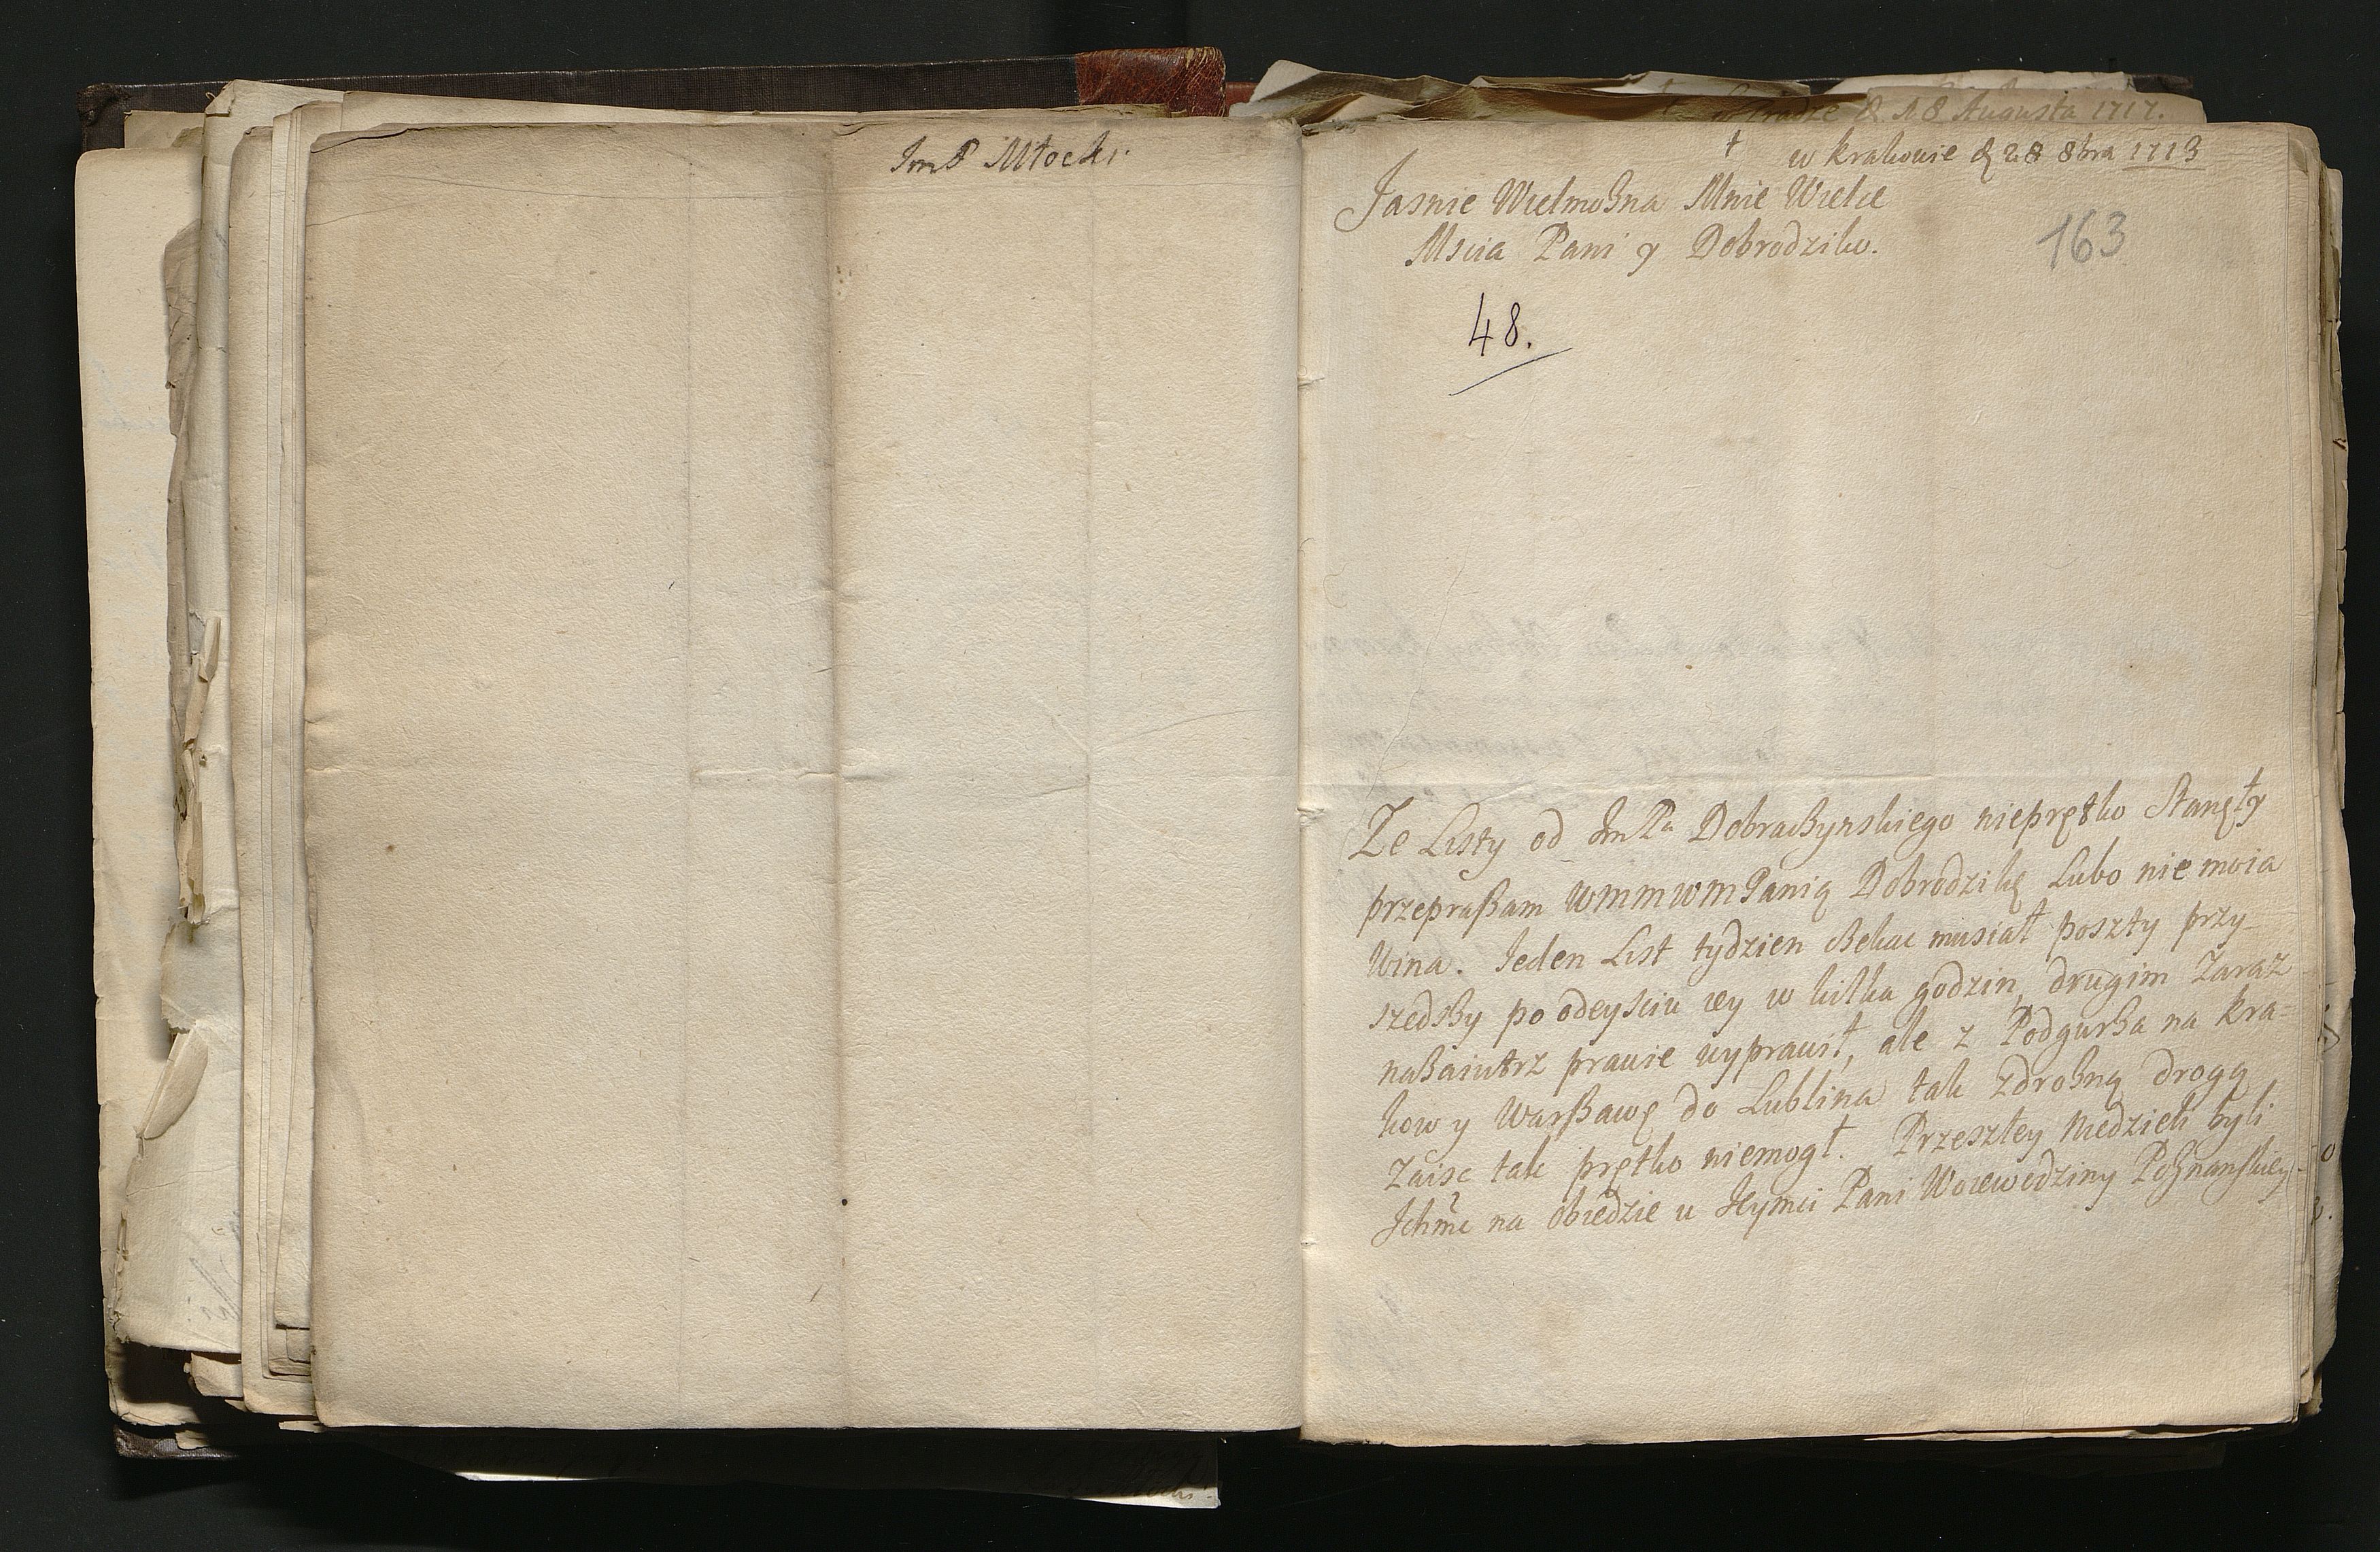 ImP Młocki
w Pradze d. 18 Augusta 1717.
† w krakowie d 28 8bra 1713
Jasnie Wielmożna Mnie Wielce
Mscia Pani y Dobrodziko.
163
48.
Ze Listy od ImPa Dobraczynskiego nieprętko Stanęły
przepraßam WMMWMPanią Dobrodzikę Lubo nie moia
Wina. Ieden List tydzien czekac musiał poszty przy-
szedßy po odeysciu iey w kilka godzin, drugim Zaraz
naßaiutrz prawie wyprawił, ale z Podgurßa na kra=
kow y Warßawę do Lublina tak zdrożną drogą
Zaisc tak prętko niemogł. Przeszłey Niedzieli byli
Ichmc na Obiedzie u Ieymci Pani Woiewodziny Poznanskiey